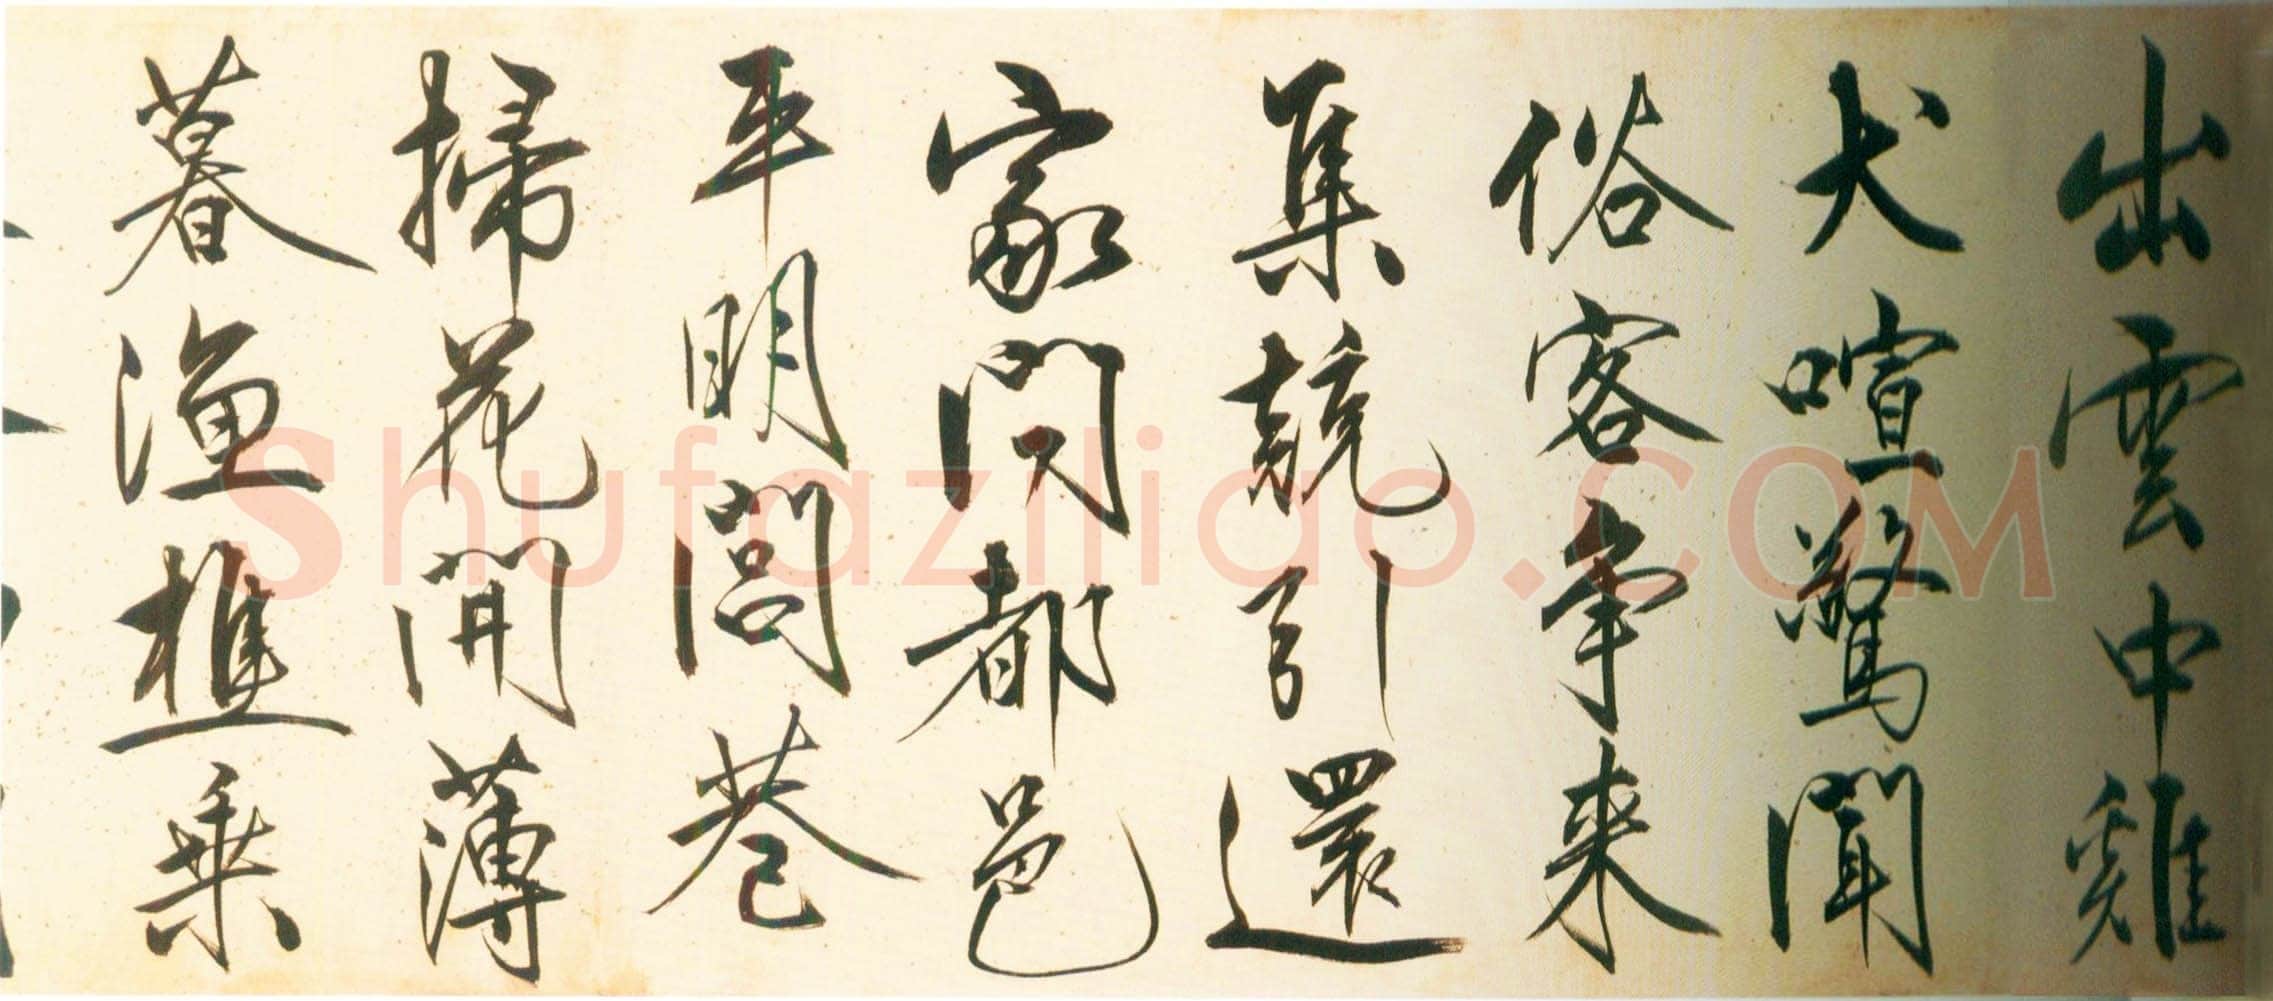 出雲中雞
犬喧驚聞
俗客争来
集競引還
家問都邑
平明閭巷
掃花開薄
暮漁樵乗
Shufaziliao.COM